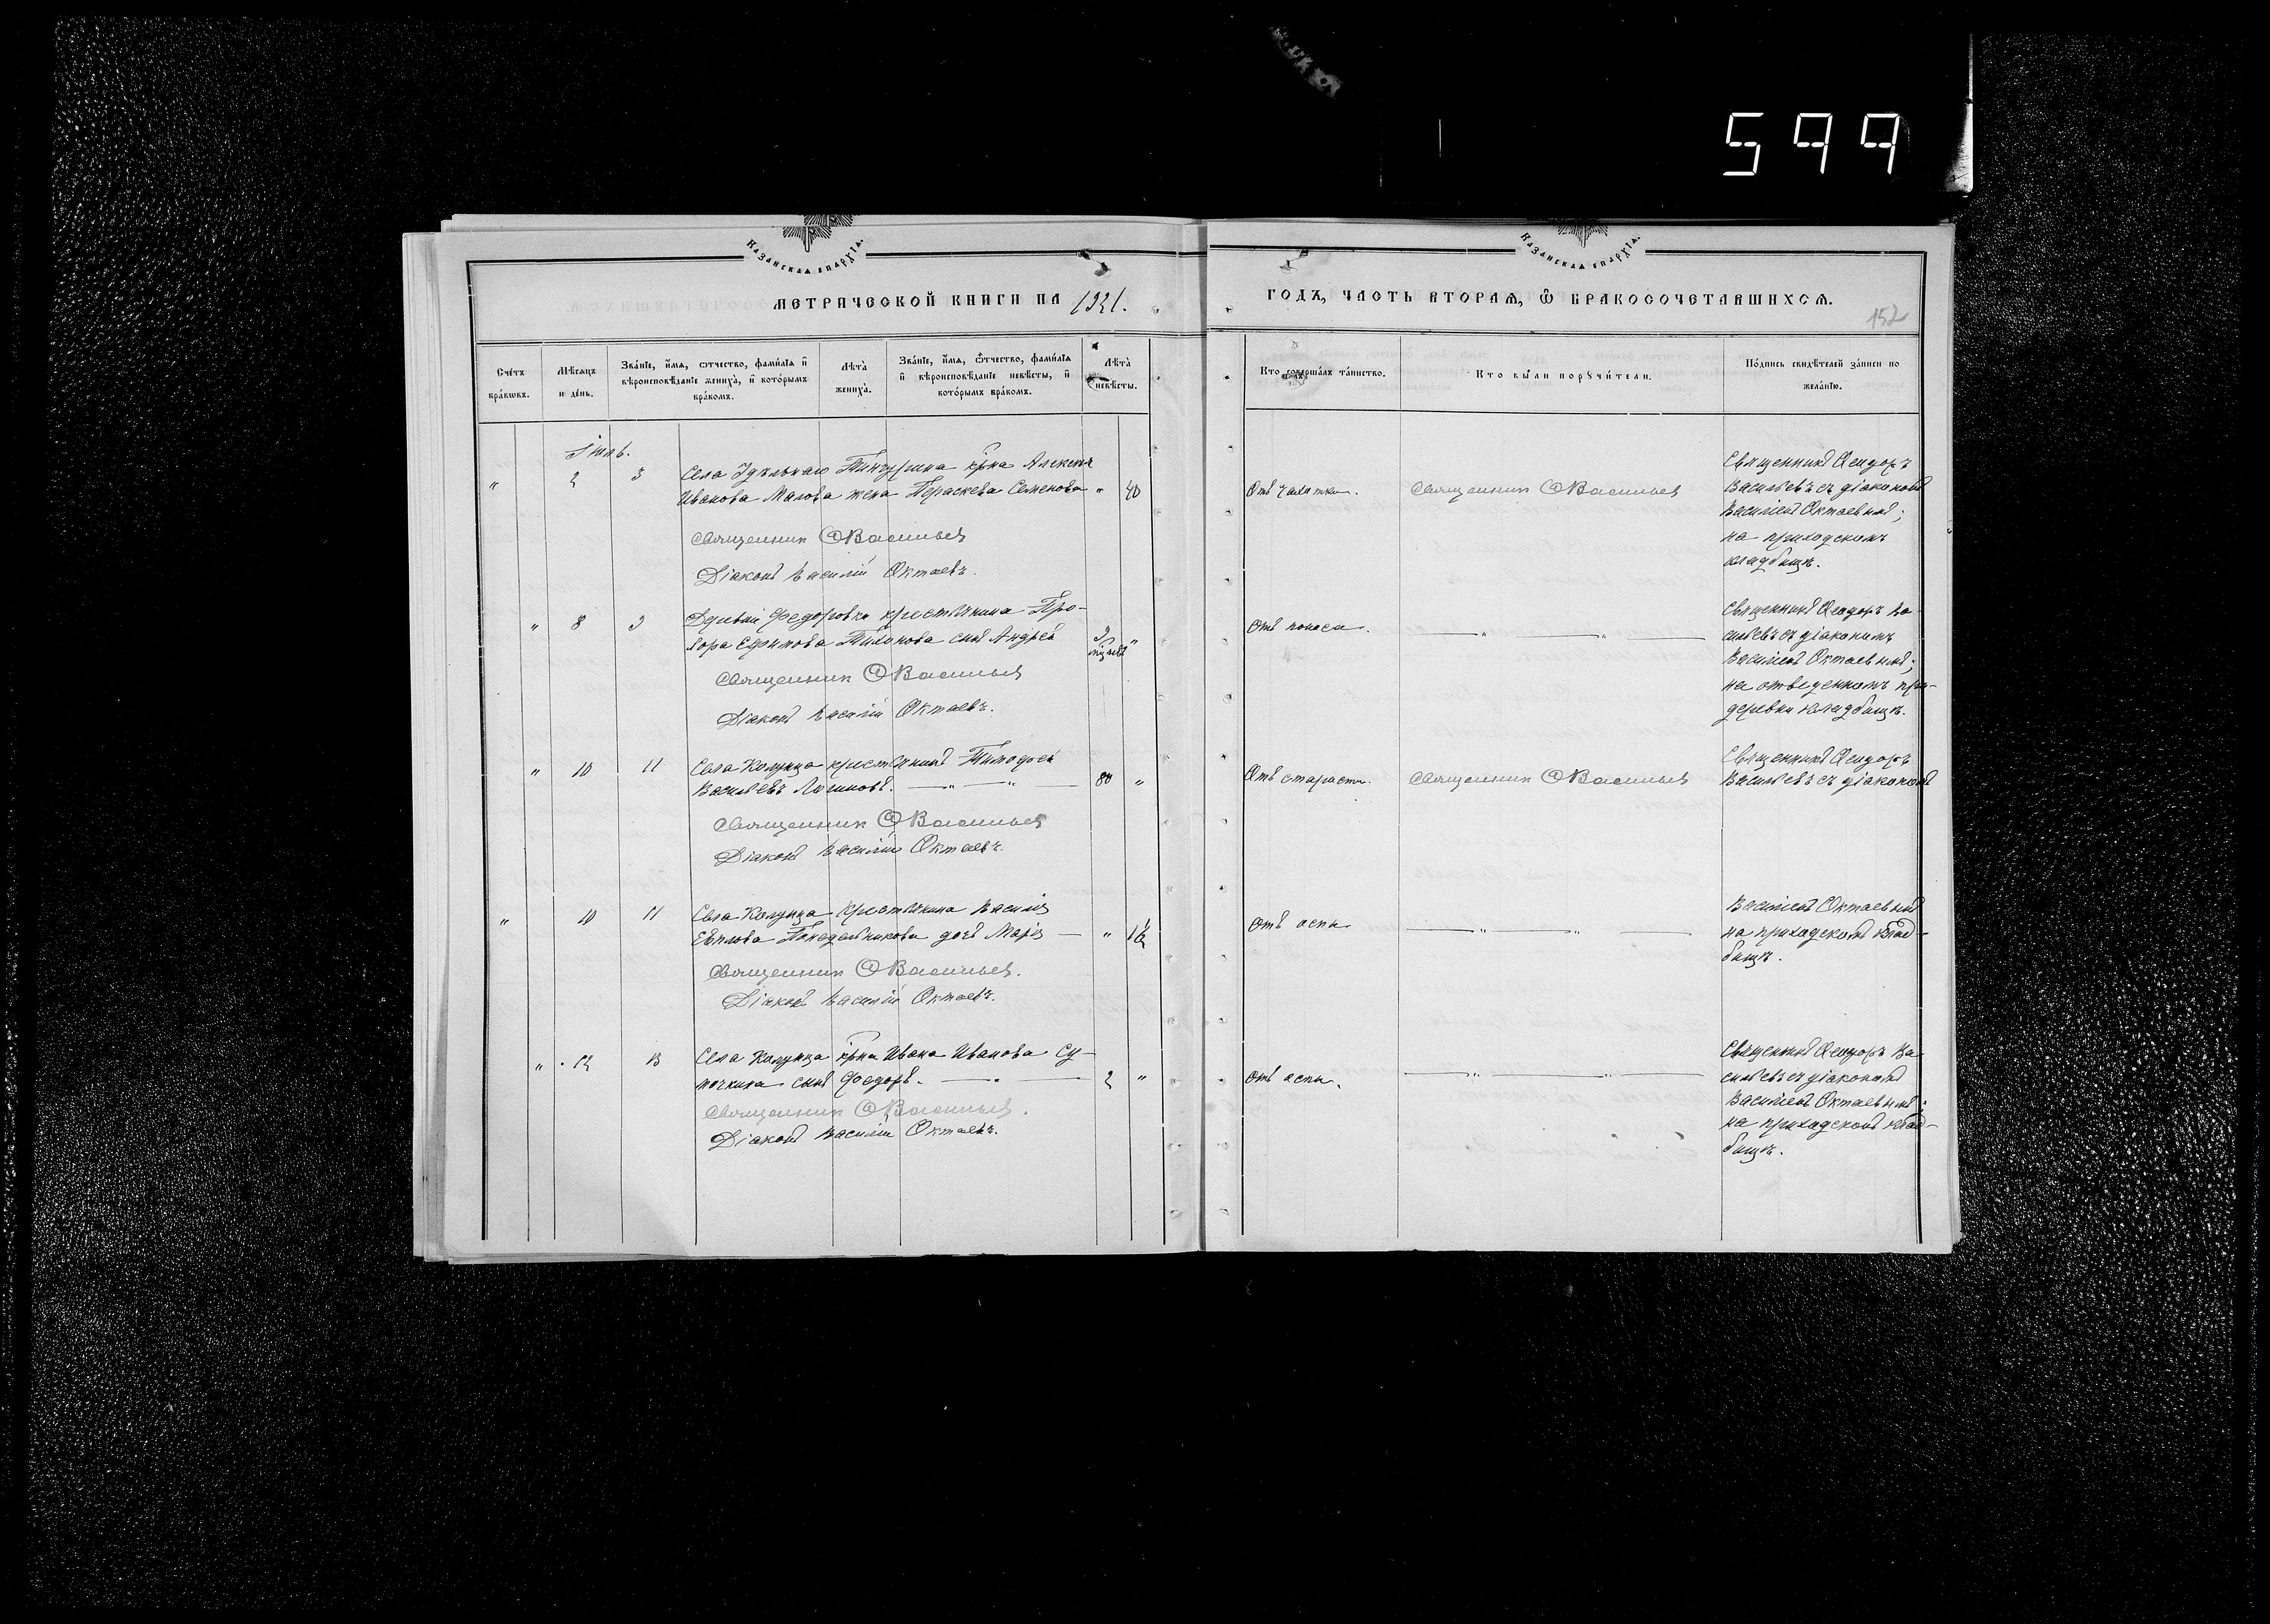 599
Казанская епархїа.
Казанская епархїа.
МЕТРИЧЕСКОЙ КНИГИ НА 1921.
ГОДЪ, ЧАСТЬ ВТОРАЯ, Ѿ БРАКОСОЧЕТАВШИХСЯ.
152
Счетъ браковъ.
Мѣсяцъ и день.
Званїе, имя, отчество, фамилїя и вѣроисповѣданїе жениха, и которымъ бракомъ.
Лѣта жениха.
Званїе, имя, отчество, фамилїя и вѣроисповѣданїе невѣсты, и которымъ бракомъ.
Лѣта невѣсты.
Кто совершалъ таинство.
Кто были поручители.
Подпись свидѣтелей записи по желанїю.
Іюль.
" 2 3 Села Удѣльнаго Тинчурина кр-на Алексея
Иванова Малова жена Параскева Семенова " 40
Священник Ѳ Васильев
Діаконъ Василій Октаевъ.
Отъ чахотки.
Священник Ѳ Васильев
Священникъ Ѳеодоръ
Васильевъ съ діакономъ
Василіемъ Октаевымъ;
на приходскомъ
кладбищѣ.
" 8 9 Деревни Федоровки крестьянина Про-
хора Ефимова Тихонова сынъ Андрей 9 мѣсяцевъ "
Священник Ѳ Васильев
Діаконъ Василій Октаевъ.
Отъ поноса.
" "
Священникъ Ѳеодоръ Ва-
сильевъ съ діакономъ
Василіемъ Октаевымъ;
на отведенномъ при-
деревни кладбищѣ.
" 10 11 Села Колунца крестьянинъ Тимофей
Васильевъ Логиновъ. " " 80 "
Священник Ѳ Васильев
Діаконъ Василій Октаевъ.
Отъ старости.
Священник Ѳ Васильев
Священникъ Ѳеодоръ
Васильевъ съ діакономъ
" 10 11 Села Колунца крестьянина Василія
Евплова Понедельникова дочь Марія " 1½
Священник Ѳ Васильев.
Діаконъ Василій Октаевъ.
Отъ оспы
" "
Василіемъ Октаевымъ
на приходскомъ клад-
бищѣ.
" 12 13 Села Колунца кр-на Ивана Иванова Су-
сынъ Федоръ. 2 "
Священник Ѳ Васильев.
Діаконъ Василій Октаевъ.
Отъ оспы.
" "
Священникъ Ѳеодоръ Ва-
сильевъ съ діакономъ
Василіемъ Октаевымъ;
на приходскомъ клад-
бищѣ.